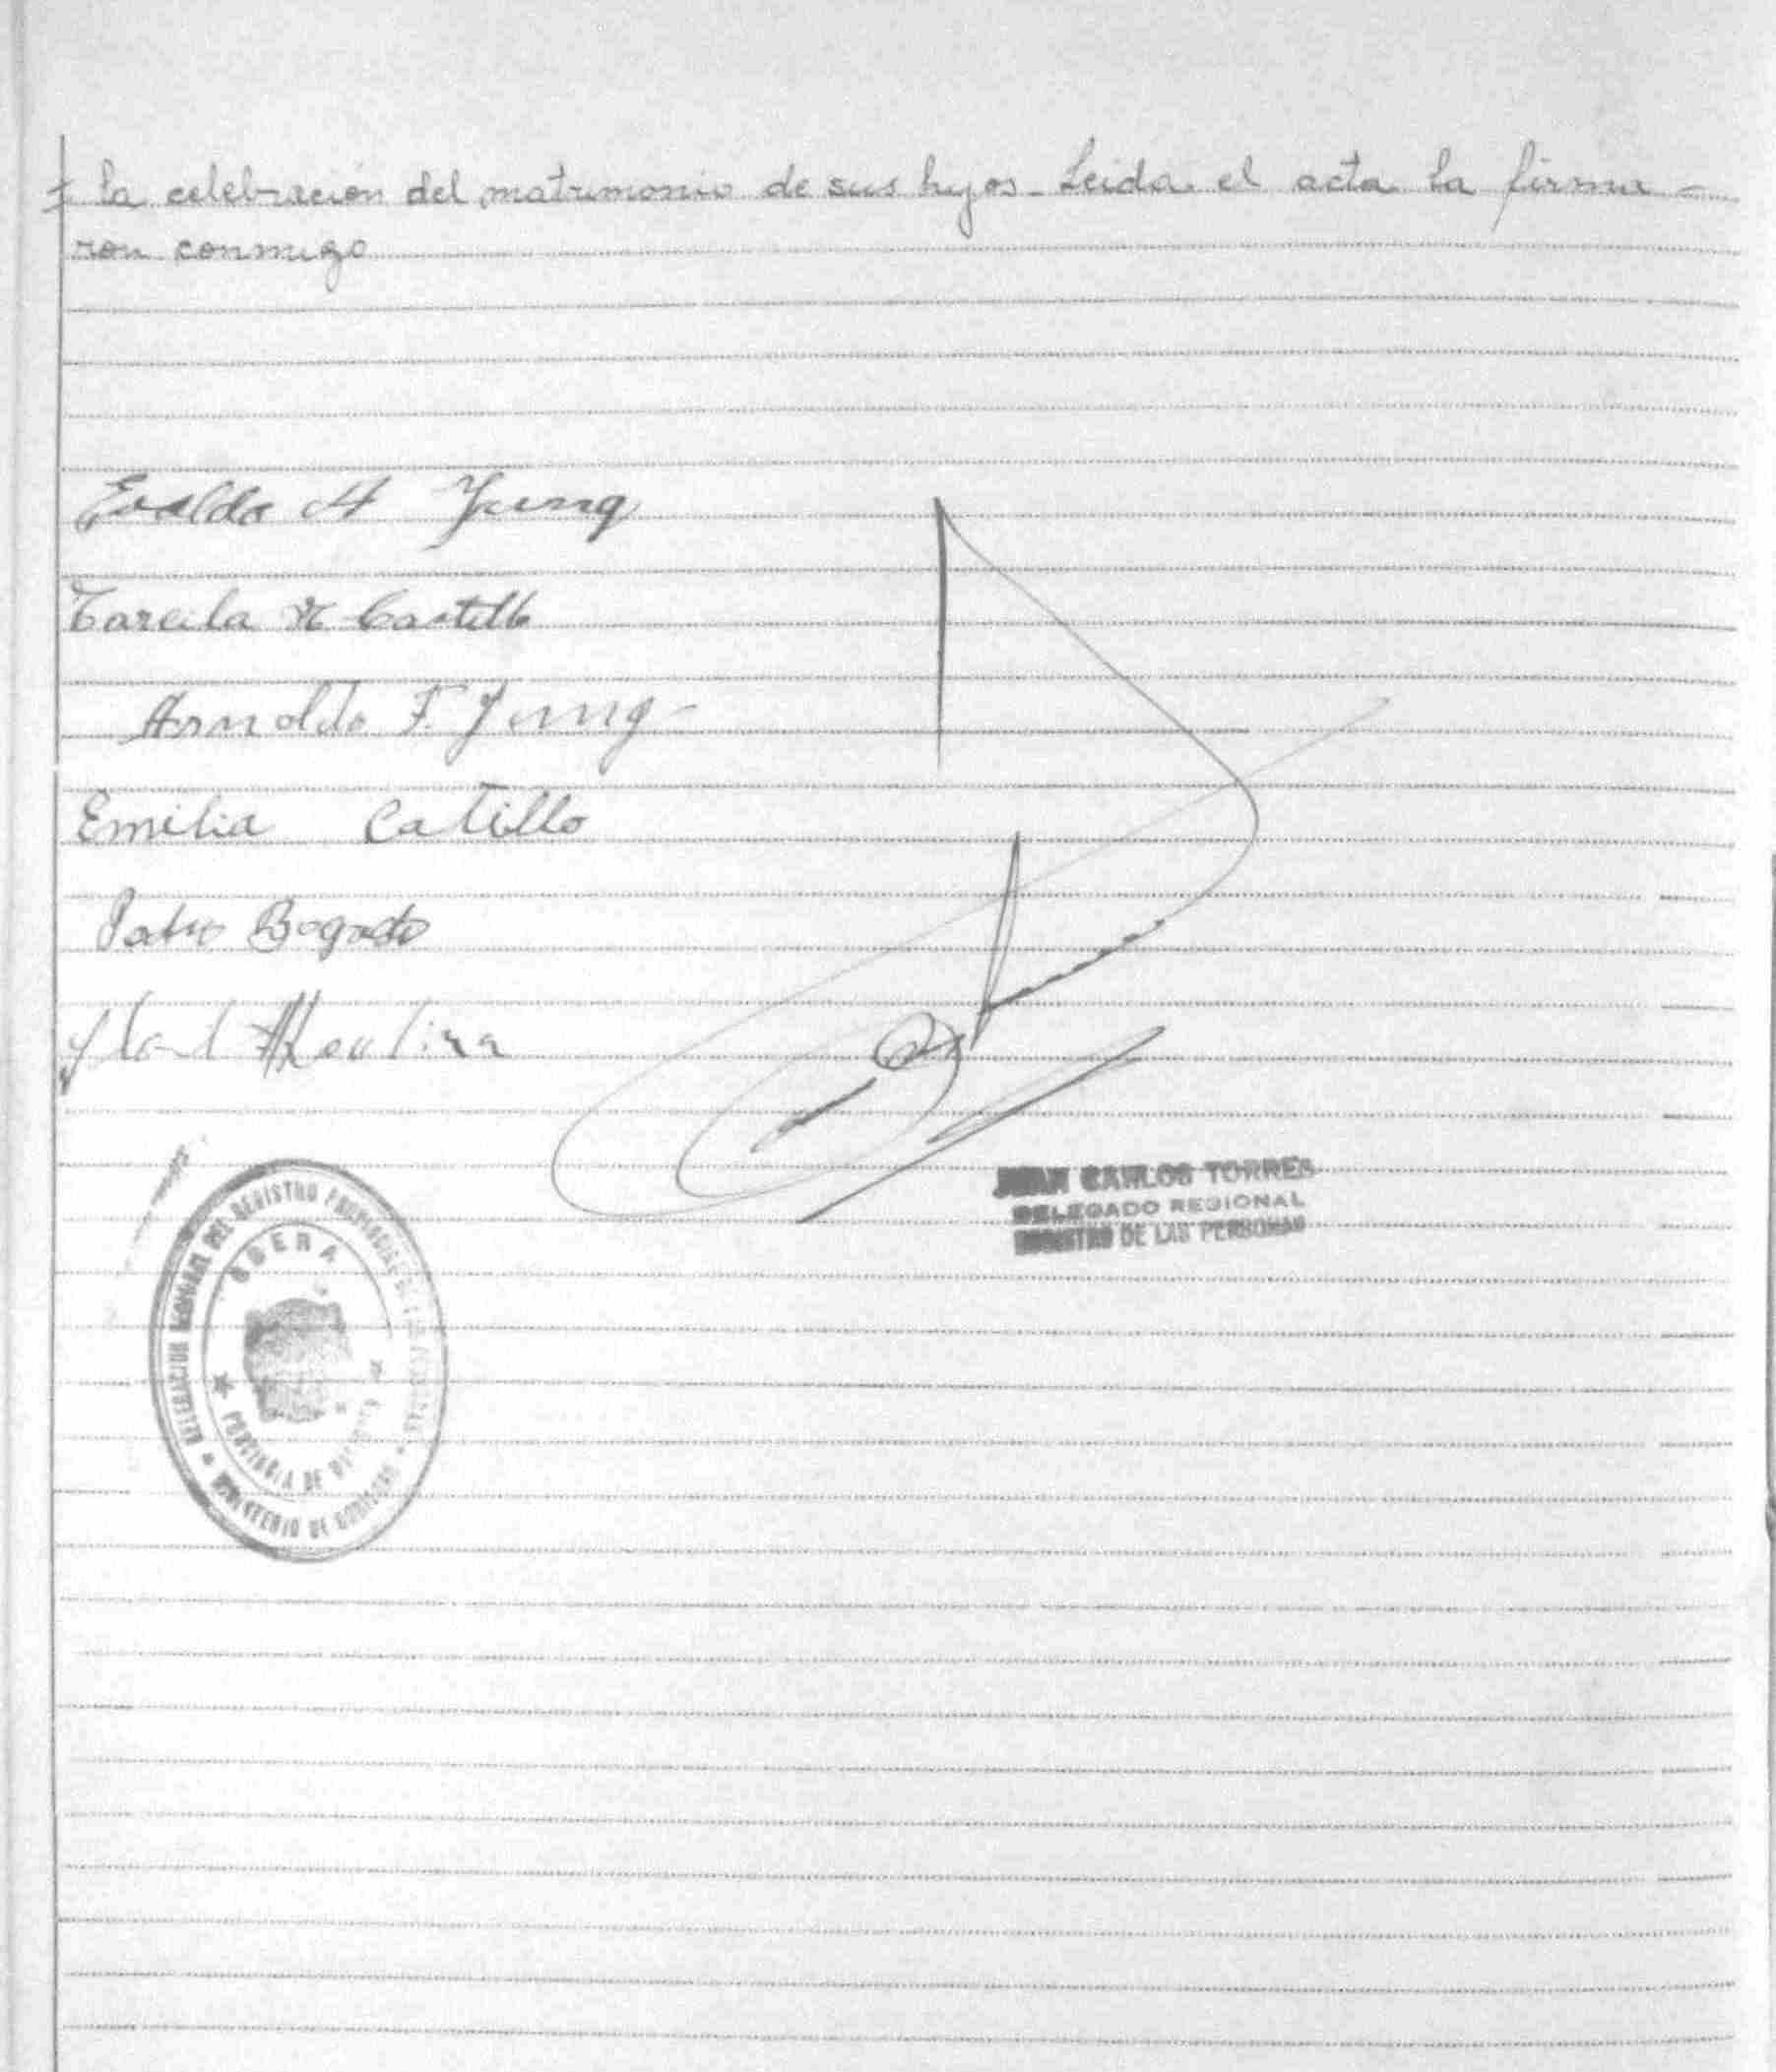 la celebración del matrimonio de sus hijos - Leida el acta la firma -
ron conmigo
Evaldo H Jung
Tarcila H Castillo
Arnoldo F. Jung
Emilia Catillo
Bogado
JUAN CARLOS TORRES
DELEGADO REGIONAL
REGISTRO DE LAS PERSONAS
DELEGACION REGIONAL DEL REGISTRO PROVINCIAL DE LAS PERSONAS
OBERA
PROVINCIA DE MISIONES
MINISTERIO DE GOBIERNO